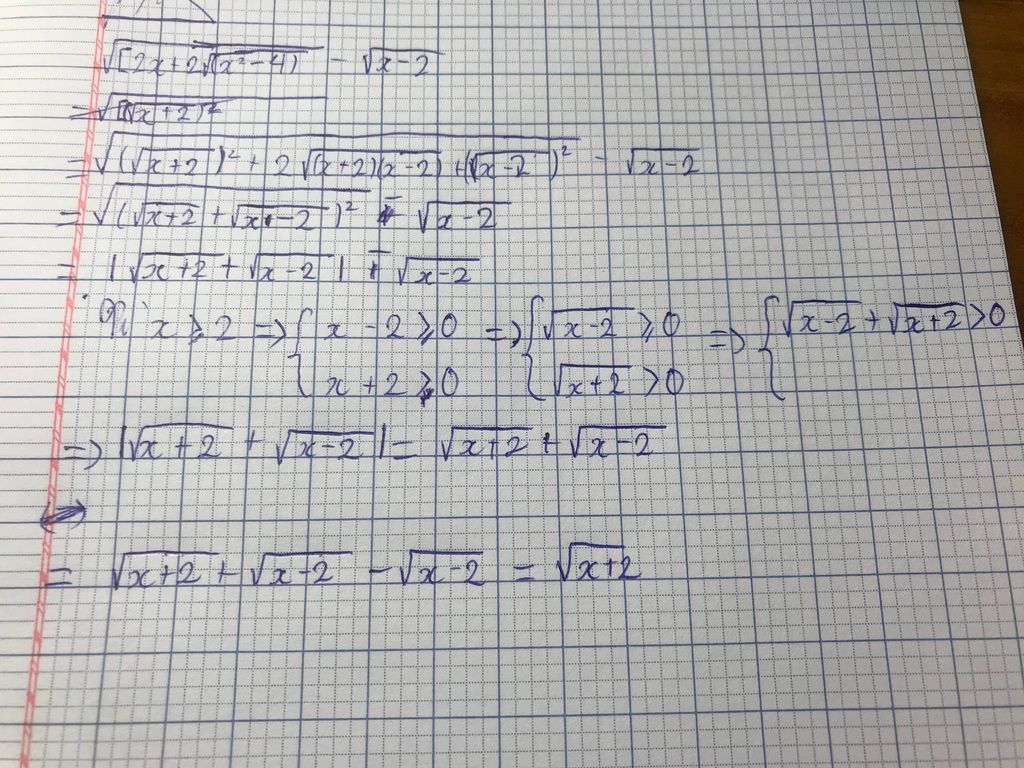 √[2x+2√(x²-4)] - √x-2
=√[(√x+2)²
=√(√x+2)² + 2√(x+2)(x-2) +(√x-2)² - √x-2
=√(√x+2 + √x-2)² - √x-2
= |√x+2 + √x-2| - √x-2
x ⩾ 2 => { x - 2 ⩾ 0 => { √x-2 ⩾ 0 => { √x-2 + √x+2 > 0
x + 2 > 0 √x+2 > 0
=> |√x+2 + √x-2| = √x+2 + √x-2
<=>
= √x+2 + √x-2 - √x-2 = √x+2